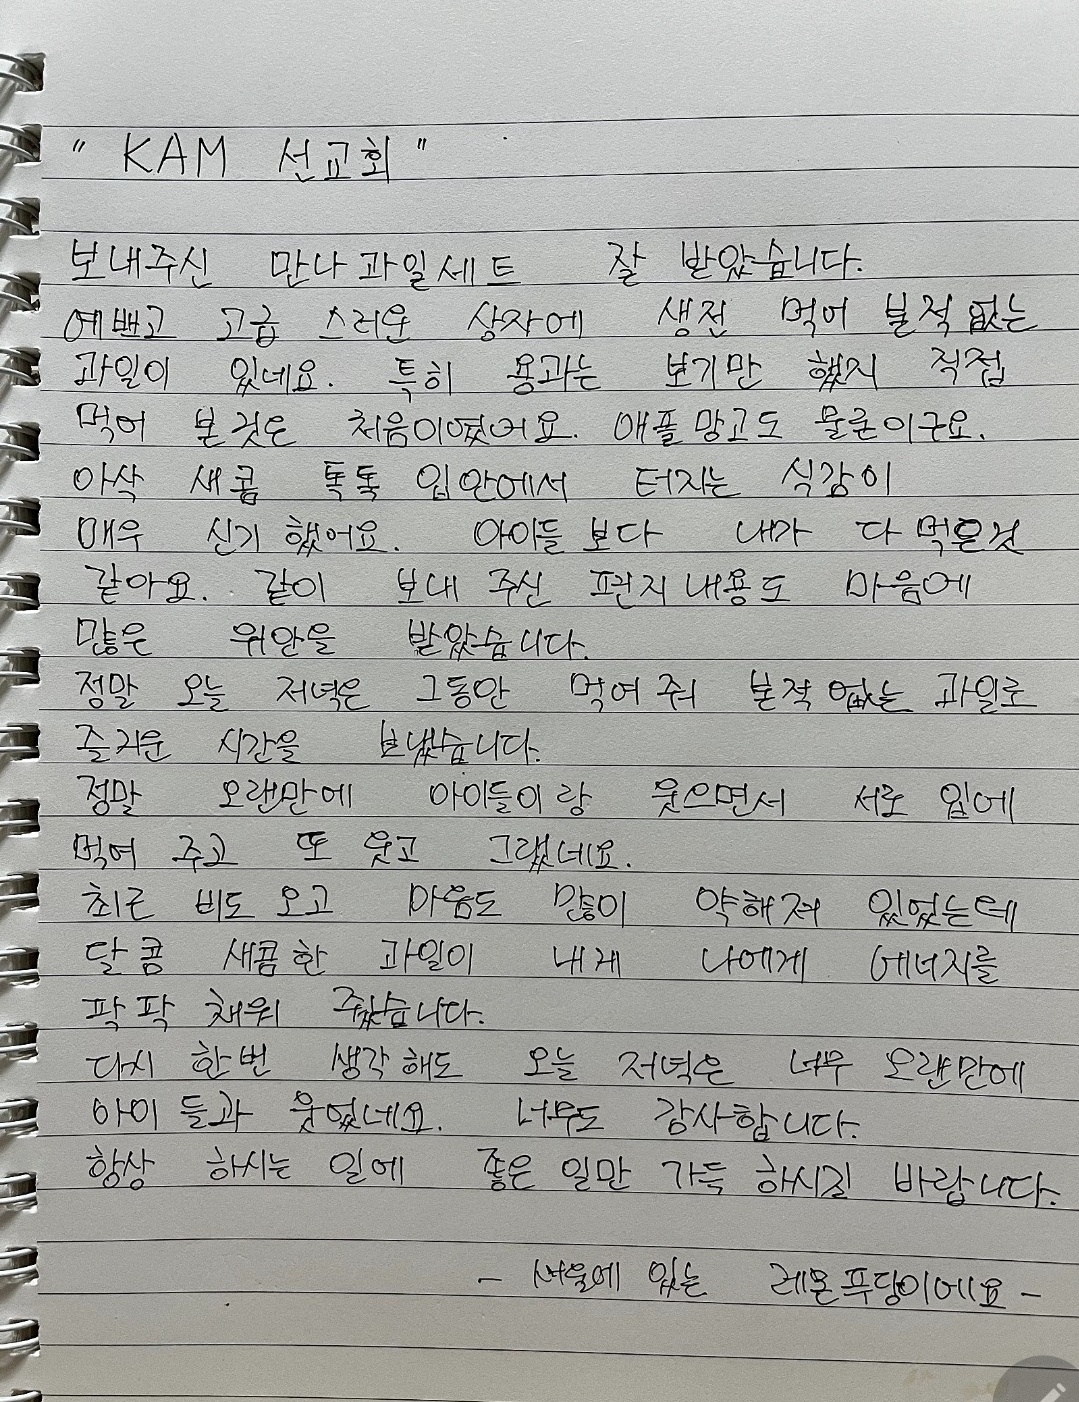 " KAM 선교회 "
보내주신 만나과일세트 잘 받았습니다.
예쁘고 고급 스러운 상자에 생전 먹어 본적 없는
과일이 있네요. 특히 용과는 보기만 했지 직접
먹어 본것은 처음이였어요. 애플망고도 물론이구요.
아삭 새콤 톡톡 입안에서 터지는 식감이
매우 신기 했어요. 아이들 보다 내가 다 먹은것
같아요. 같이 보내 주신 편지 내용도 마음에
많은 위안을 받았습니다.
정말 오늘 저녁은 그동안 먹어 줘 본적 없는 과일로
즐거운 시간을 보냈습니다.
정말 오랜만에 아이들이랑 웃으면서 서로 입에
먹여 주고 또 웃고 그랬네요.
최근 비도 오고 마음도 많이 약해져 있었는데
달콤 새콤한 과일이 내게 나에게 에너지를
팍팍 채워 줬습니다.
다시 한번 생각해도 오늘 저녁은 너무 오랜만에
아이들과 웃었네요. 너무도 감사합니다.
항상 하시는 일에 좋은 일만 가득 하시길 바랍니다.
- 서울에 있는 레몬푸딩이에요 -